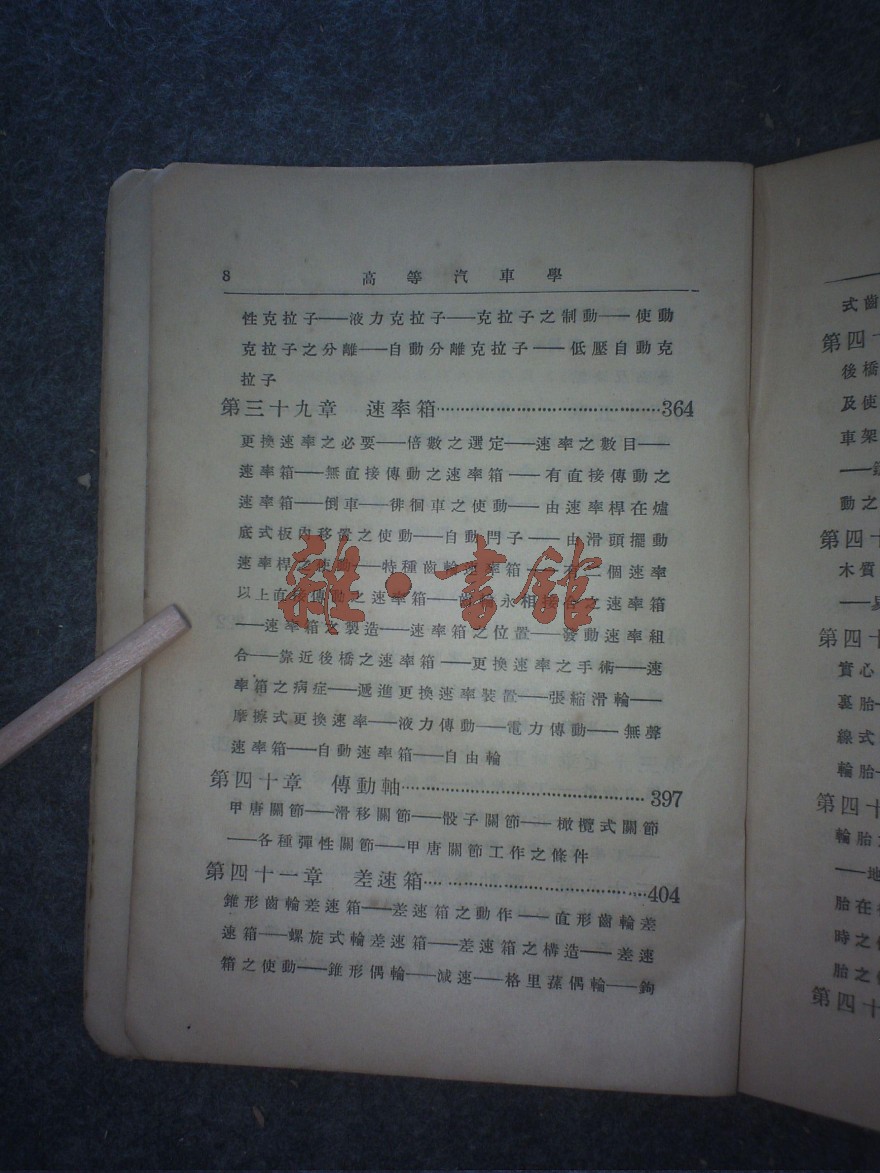 8 高等汽車學
性克拉子——液力克拉子——克拉子之制動——使動
克拉子之分離——自動分離克拉子——低壓自動克
拉子
第三十九章 速率箱……364
更換速率之必要——倍數之選定——速率之數目——
速率箱——無直接傳動之速率箱——有直接傳動之
速率箱——倒車——徘徊車之使動——由速率桿在爐
底式板內移置之使動——自動門子——由滑頭擺動
速率桿之使動——特種齒輪速率箱——有二個速率
以上直接傳動之速率箱——齒輪永相接合之速率箱
——速率箱之製造——速率箱之位置——發動速率組
合——靠近後橋之速率箱——更換速率之手術——速
率箱之病症——遞進更換速率裝置——張縮滑輪——
摩擦式更換速率——液力傳動——電力傳動——無聲
速率箱——自動速率箱——自由輪
第四十章 傳動軸……397
甲唐關節——滑移關節——骰子關節——橄欖式關節
——各種彈性關節——甲唐關節工作之條件
第四十一章 差速箱……404
錐形齒輪差速箱——差速箱之動作——直形齒輪差
速箱——螺旋式輪差速箱——差速箱之構造——差速
箱之使動——錐形偶輪——减速——格里蓀偶輪——鉤
雜·書館
式齒
第四十
後橋
及使
車架
動之
第四十
木質
第四十
實心
裏胎
線式
輪胎
第四十
輪胎
——地
胎在
時之
胎之
第四十